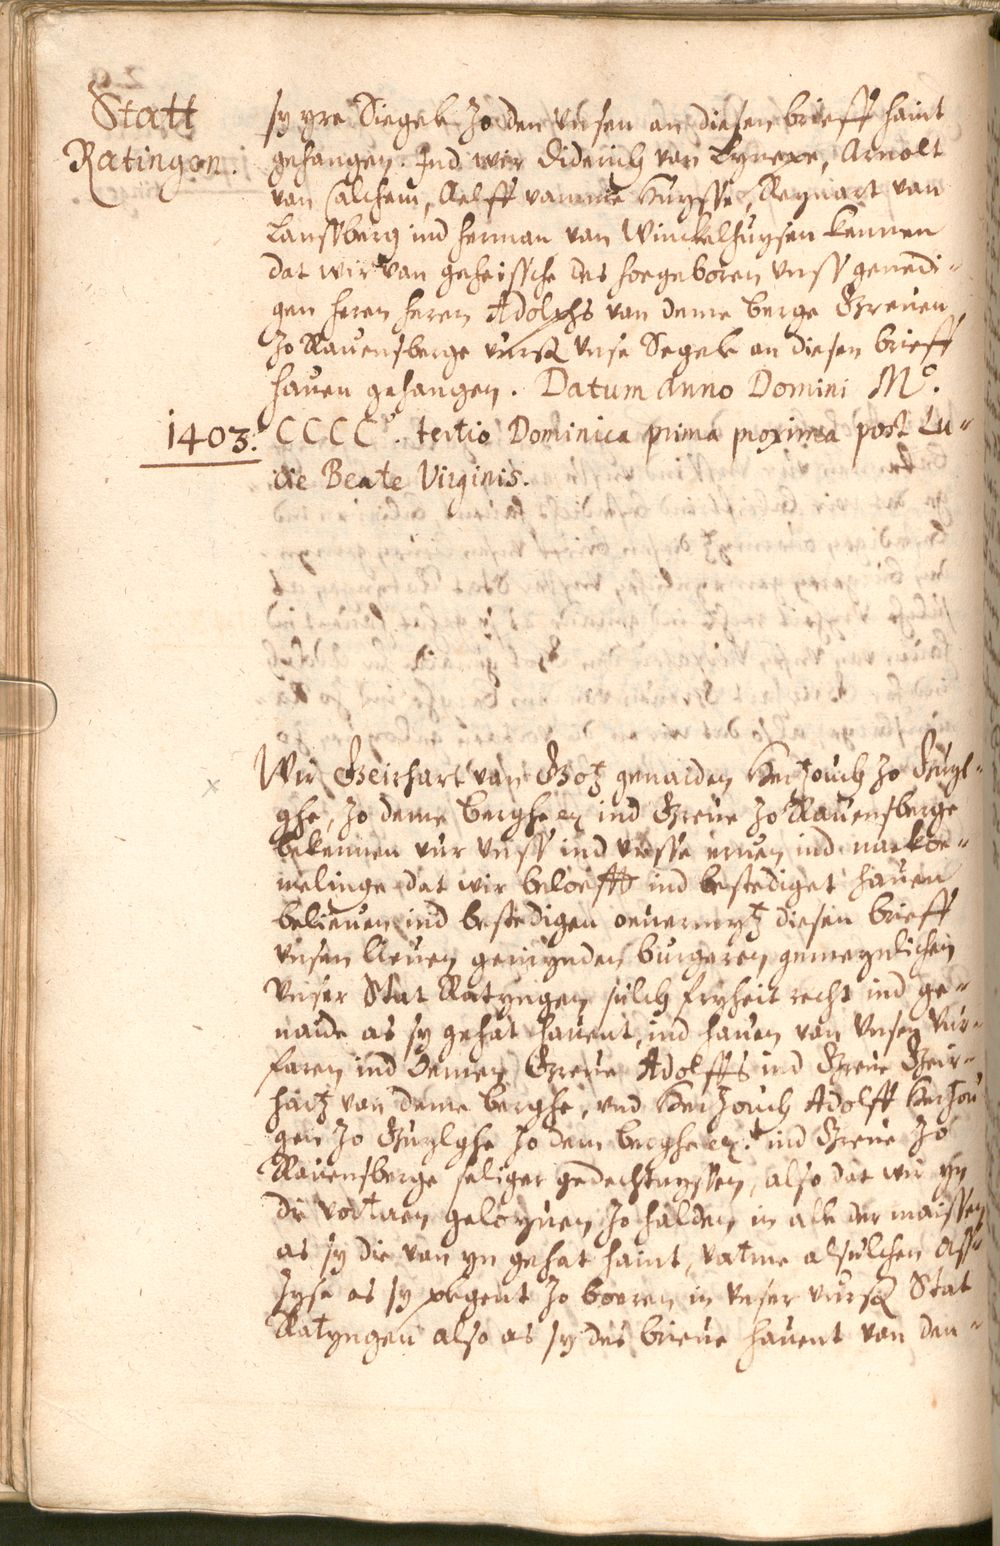 Statt
Ratingen.
sy yre Siegele zo den unsen an diesen brieff haint
gehangen. Ind wir Diderich van Lynepe, Arnolt
van Calchem, Aelff vamme Huysse, Reynart van
Lanssberg ind Herman van Winckelhuysen kennen
dat wir van geheissche des hoegeboren unss genedi-
gen heren heren Adolphs van deme Berge Greuen
zo Rauensberge vursz unse Segele an diesen brieff
hauen gehangen. Datum Anno Domini Mº.
1403. CCCCº. tertio Dominica prima proxima post Lu-
cie Beate Virginis.
Wir Geirhart van Gotz genaiden Hertzouch zo Guyl-
ghe, zo deme Berghe etc ind Greue zo Rauensberge
bekennen vur unss ind unsse eruen ind naekoe-
melinge dat wir beloefft ind bestediget hauen
belieuen ind bestedigen ouermytz diesen brieff
unsen lieuen gemynden burgeren gemeynlichen
unser Stat Ratyngen sulch fryheit recht ind ge-
naide as sy gehat hauent, ind hauen van unsen vur-
faren ind Oemen Greue Adolffs ind Greue Geir-
hartz van deme Berghe, und Hertzouch Adolff Hertzou
gen zo Guylghe zo dem Berghe etc. ind Greue zo
Rauensberge seliger gedechtnyssen, also dat wir yn
die vortaen geloyuen zo halden in alle der maissen
as sy die van yn gehat haint, vatme alsulchen Ass-
zyse as sy plegent zo boeren in unser vursz Stat
Ratyngen also as sy des brieue hauent van den-